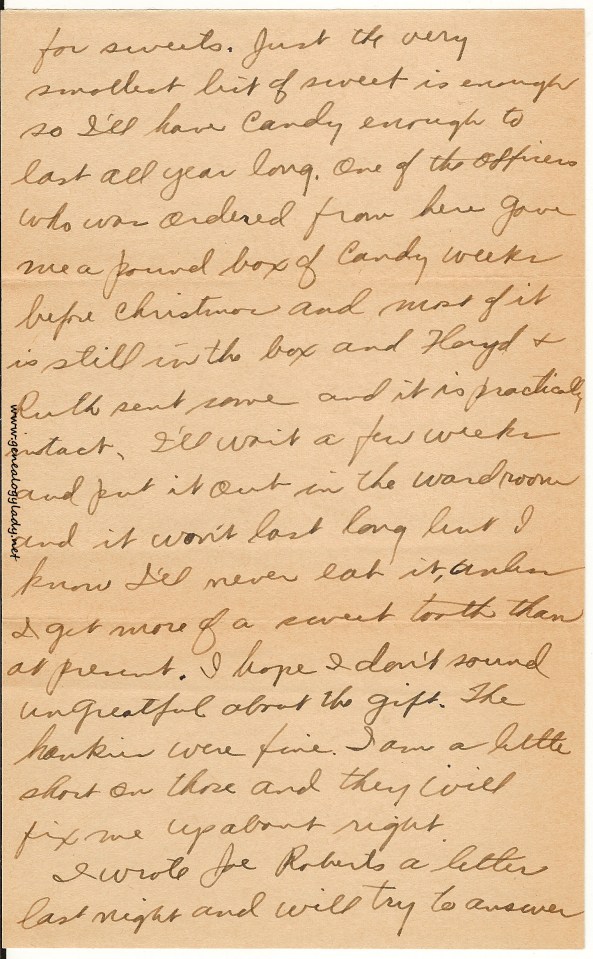 for sweets. Just the very
smallest bit of sweet is enough
so I'll have Candy enough to
last all year long. One of the officers
who was ordered from here gave
me a pound box of Candy weeks
before Christmas and most of it
is still in the box and Floyd &
Ruth sent some and it is practically
intact. I'll wait a few weeks
and put it out in the wardroom
and it won't last long but I
know I'll never eat it, unless
I get more of a sweet tooth than
at present. I hope I don't sound
ungreatful about the gift. The
hankies were fine. I am a little
short on those and they will
fix me up about right
I wrote Joe Roberts a letter
last night and will try to answer
www.genealogylady.net